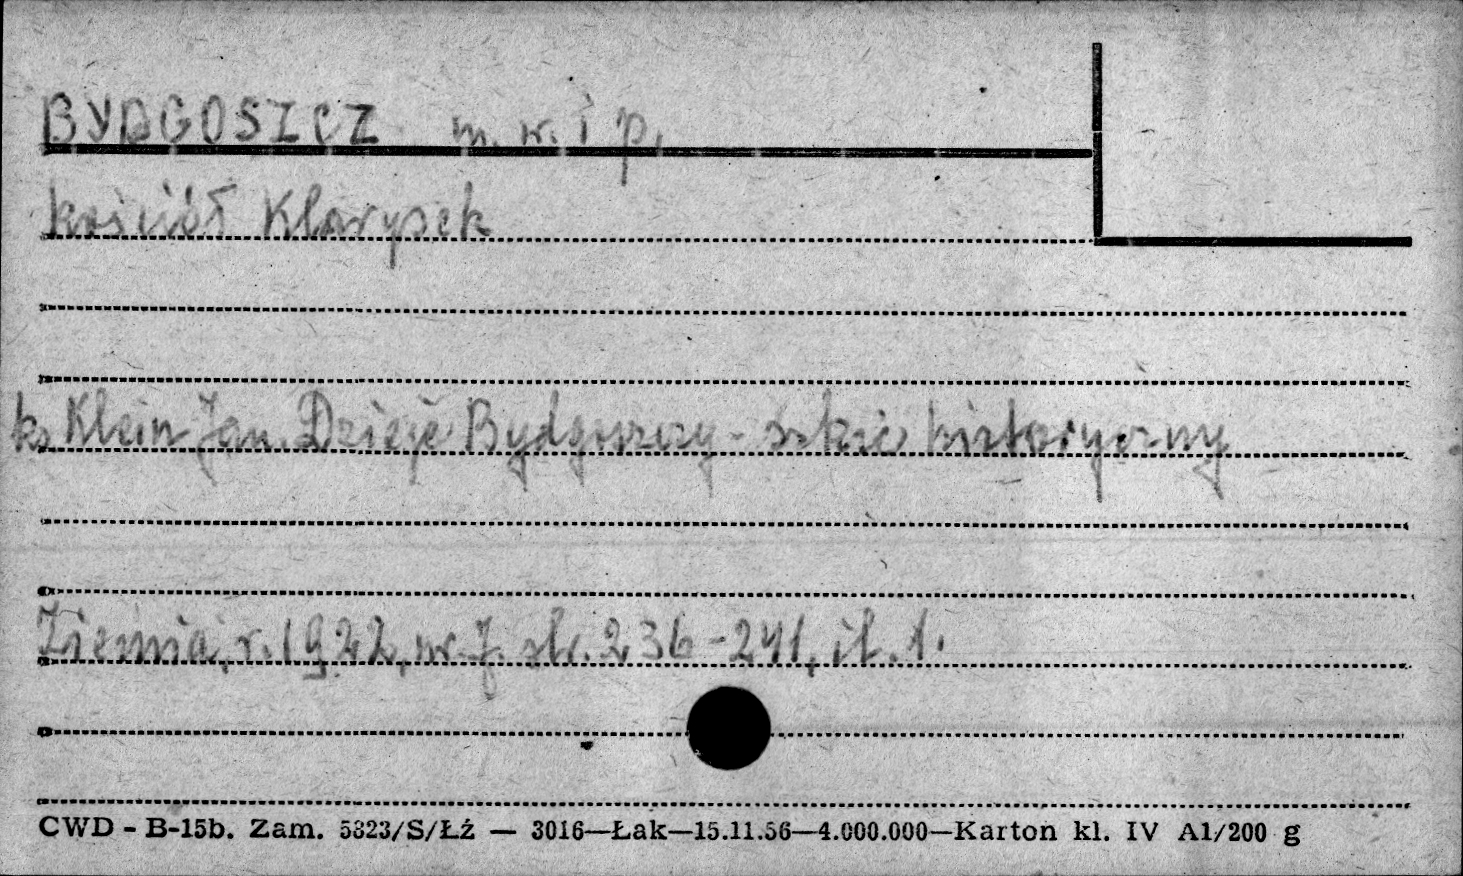 BYDGOSZCZ m. w. i p.
kościół Klarysek
ks Klein Jan. Dzieje Bydgoszczy - szkic historyczny
Ziemia, r. 1922, nr. 7. str. 236-241, il. 1.
CWD - B-15b. Zam. 5323/S/Łź — 3016—Łak—15.11.56—4.000.000—Karton kl. IV A1/200 g